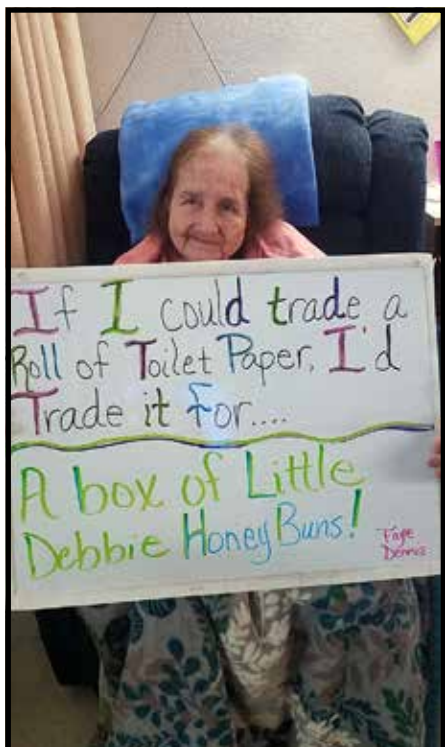 If I could trade a
Roll of Toilet Paper, I'd
Trade it for....
A box of Little
Debbie Honey Buns!
Faye
Dennis